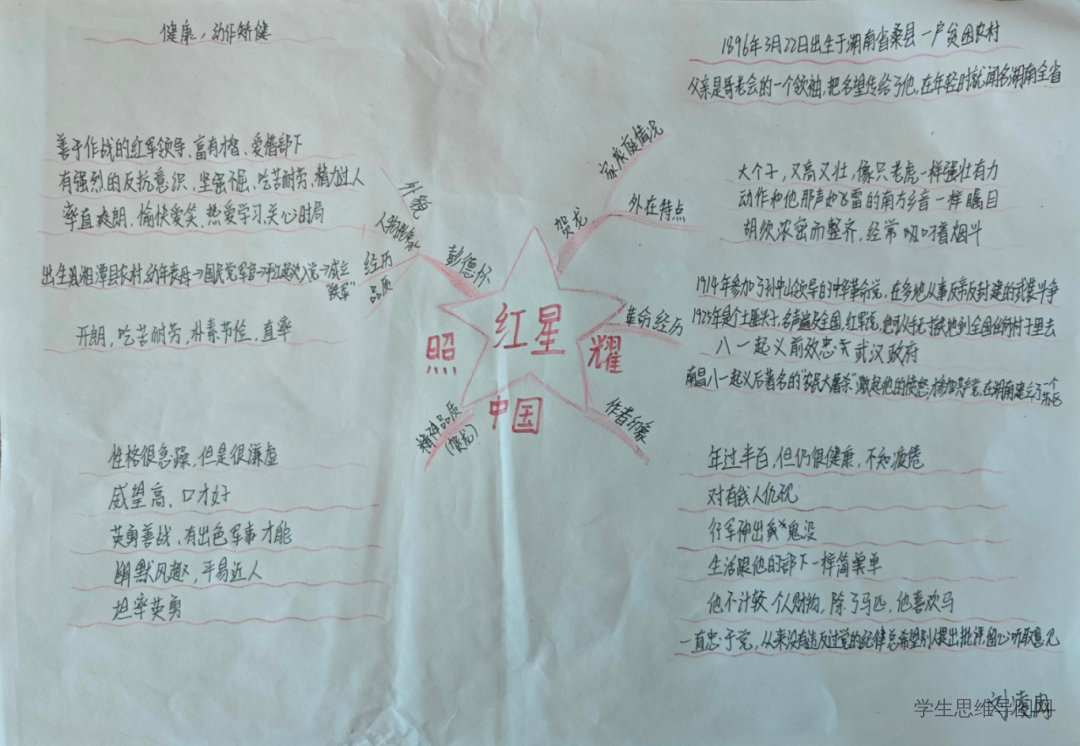 健康，动作矫健
善于作战的红军领导、富有才智、爱惜部下
有强烈的反抗意识、坚强不屈、吃苦耐劳、精力过人
率直爽朗、愉快爱笑、热爱学习、关心时局
出生县湘潭县农村,幼年丧母→国民党军官→平江起义入党→成立
"铁军"
开朗、吃苦耐劳、朴素节俭、直率
外貌
人物形象
经历
品质
彭德怀
红星
照
耀
中国
精神品质
(贺龙)
性格很急躁，但是很谦虚
威望高、口才好
英勇善战、有出色军事才能
幽默风趣，平易近人
坦率英勇
1896年3月22日出生于湖南省桑县一户贫困农村
父亲是哥老会的一个领袖,把名望传给了他,在年轻时就闻名湖南全省
家庭情况
贺龙
外在特点
大个子，又高又壮，像只老虎一样强壮有力
动作和他那声如飞雷的南方乡音一样瞩目
胡须浓密而整齐，经常叼着烟斗
革命经历
1914年参加了孙中山领导的中华革命党，在多地从事反帝反封建的武装斗争
八一起义前效忠于武汉政府
南昌八一起义后著名的"农民大屠杀"激起他的愤怒,才参加共产党,在湖南建立了一个
苏区
作者印象
年过半百，但仍很健康，不知疲倦
对有钱人仇视
行军神出鬼没
生活跟他的部下一样简单
他不计较个人财物，除了马匹，他喜欢马
一直忠于党，从来没有违反过党的纪律总希望别人提出批评留心听取意见
学生思维导图